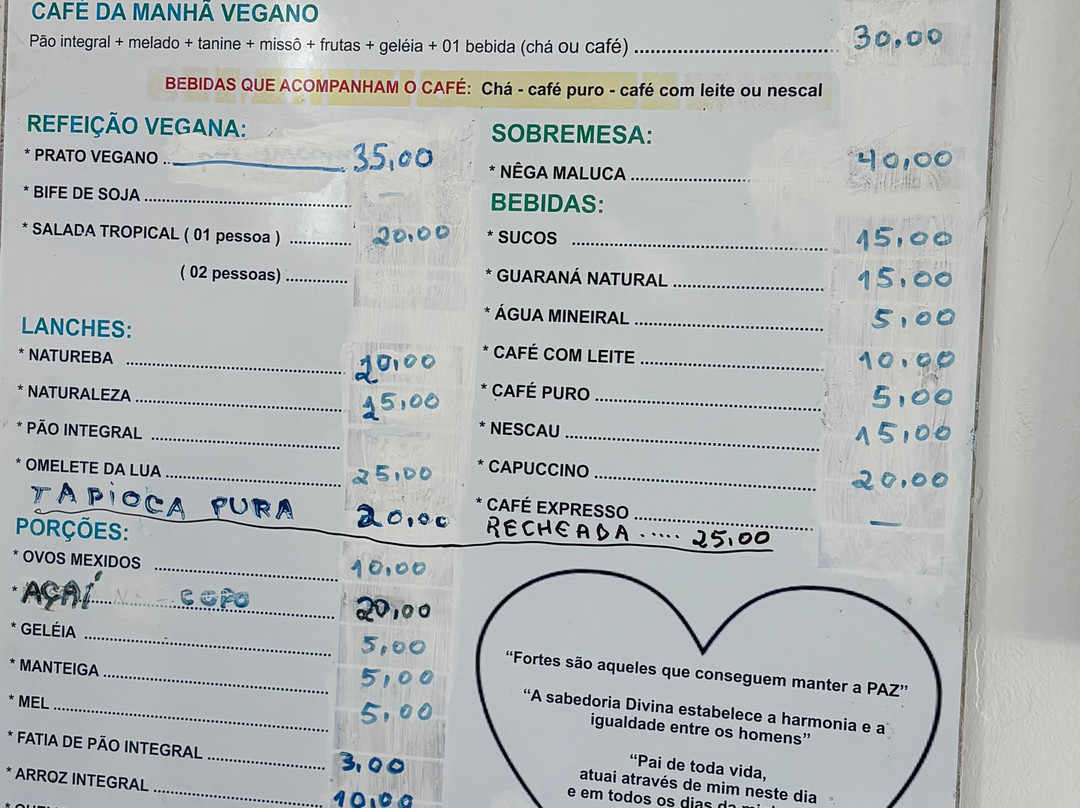 CAFÉ DA MANHÃ VEGANO
Pão integral + melado + tanine + missô + frutas + geléia + 01 bebida (chá ou café) ........ 30,00
BEBIDAS QUE ACOMPANHAM O CAFÉ: Chá - café puro - café com leite ou nescal
REFEIÇÃO VEGANA:
* PRATO VEGANO .. 35,00
* BIFE DE SOJA ........ –
* SALADA TROPICAL ( 01 pessoa ) ........ 20,00
( 02 pessoas) ........
LANCHES:
* NATUREBA ........ 20,00
* NATURALEZA ........ 25,00
* PÃO INTEGRAL ........
* OMELETE DA LUA ........ 25,00
TAPIOCA PURA 20,00
PORÇÕES:
* OVOS MEXIDOS ........ 10,00
* AÇAÍ COPO 20,00
* GELÉIA ........ 5,00
* MANTEIGA ........ 5,00
* MEL ........ 5,00
* FATIA DE PÃO INTEGRAL ........ 3,00
* ARROZ INTEGRAL ........ 10,00
SOBREMESA:
* NÊGA MALUCA ........ 40,00
BEBIDAS:
* SUCOS ........ 15,00
* GUARANÁ NATURAL ........ 15,00
* ÁGUA MINEIRAL ........ 5,00
* CAFÉ COM LEITE ........ 10,00
* CAFÉ PURO ........ 5,00
* NESCAU ........ 15,00
* CAPUCCINO ........ 20,00
* CAFÉ EXPRESSO ........ –
RECHEADA ..... 25,00
“Fortes são aqueles que conseguem manter a PAZ”
“A sabedoria Divina estabelece a harmonia e a
igualdade entre os homens”
“Pai de toda vida,
atuai através de mim neste dia
e em todos os dias da